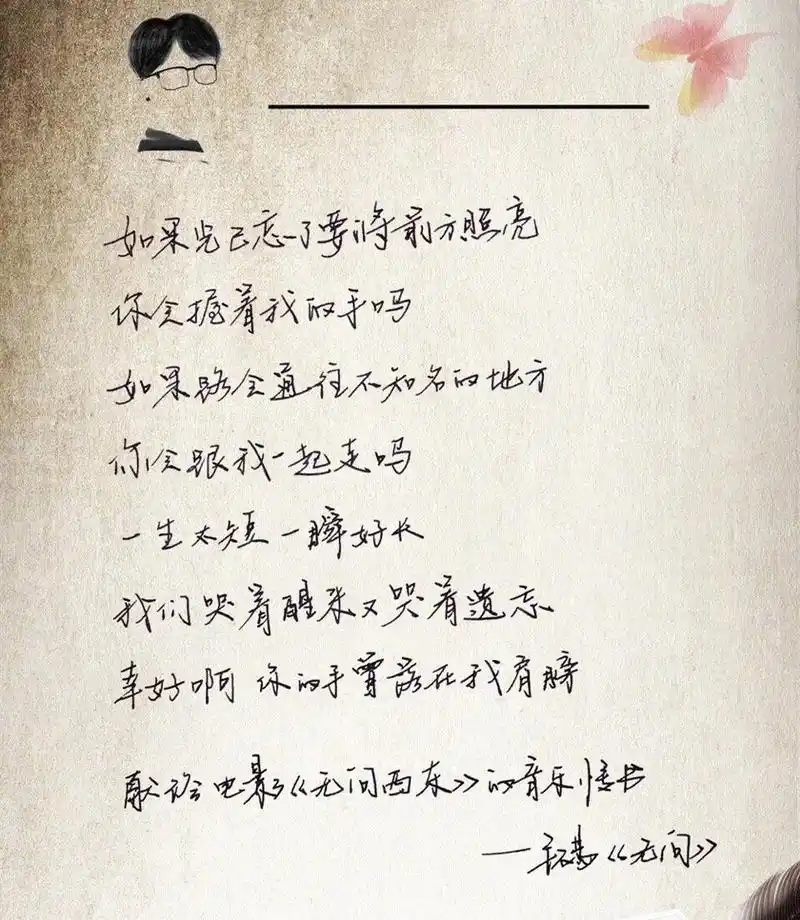 如果光已忘了要将前方照亮
你会握着我的手吗
如果路会通往不知名的地方
你会跟我一起走吗
一生太短 一瞬好长
我们哭着醒来又哭着遗忘
幸好啊 你的手曾落在我肩膀
献给电影《无问西东》的音乐情书
——《无问》